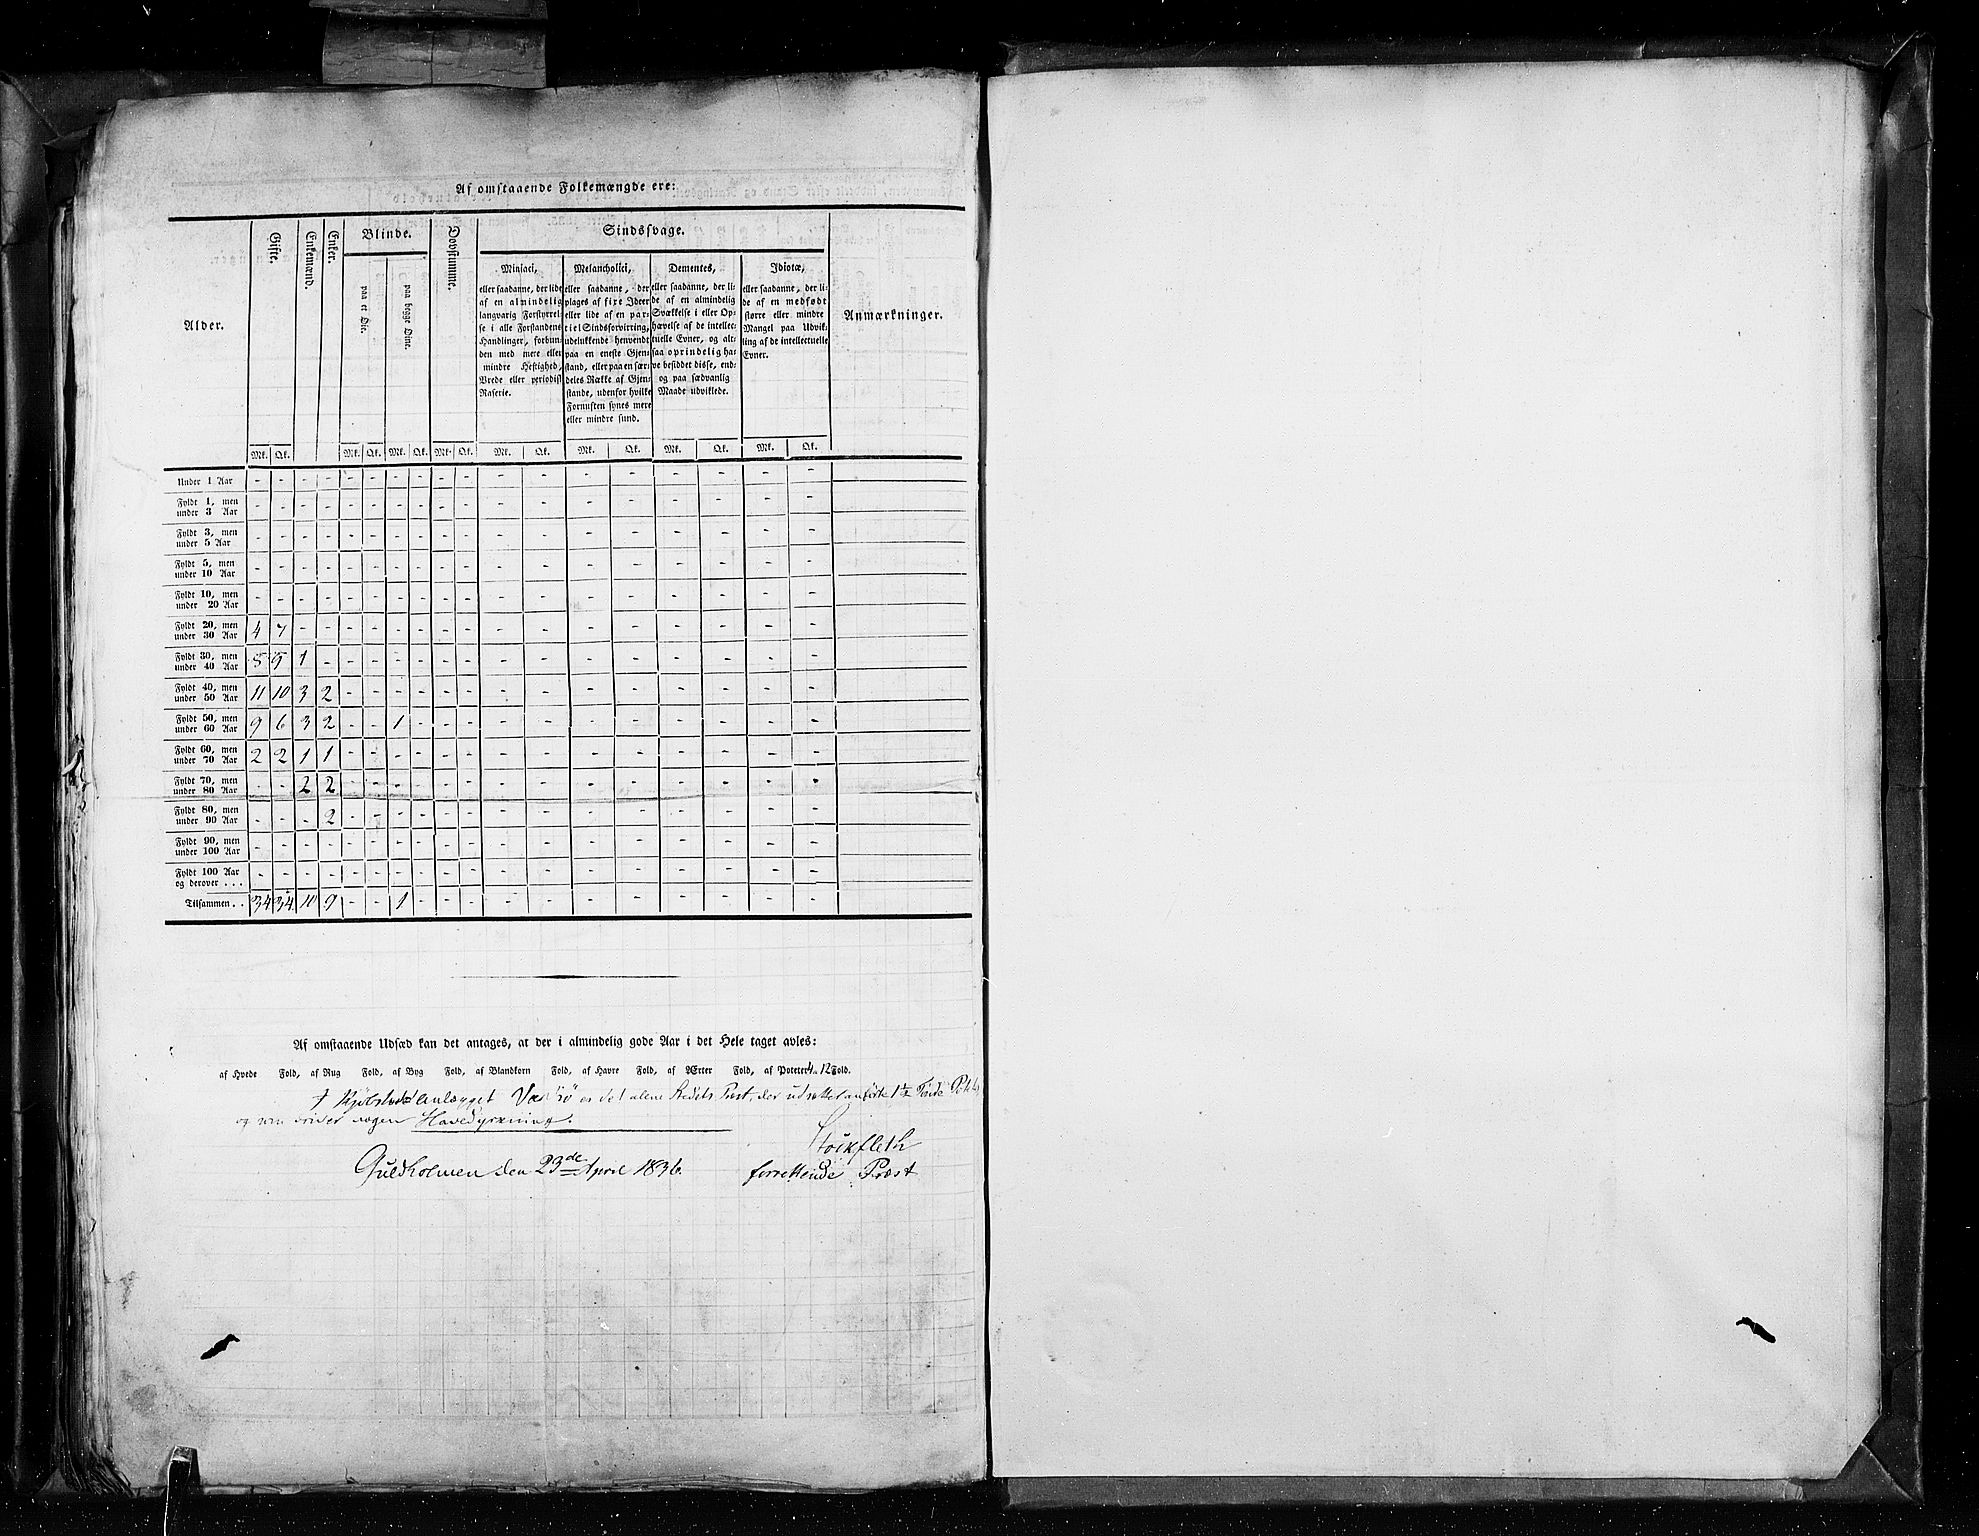 Af omstaaende Folkemængde ere:
Alder.
Gifte.
Enkemænd.
Enker.
Blinde.
paa et Øie.
paa begge Øine.
Døvstumme.
Sindssvage.
Miniaci,
eller saadanne, der lide
af en almindelig
langvarig Forstyrrel-
se i alle Forstandens
Handlinger, forbun-
den med mere eller
mindre Heftighed,
Vrede eller periodisk
Raserie.
Melancholici,
eller saadanne, der
plages af fixe Ideer
eller lide af en par-
tiel Sindsforvirring,
udelukkende henvendt
paa en eneste Gjen-
stand, eller paa en sær-
deles Række af Gjen-
stande, udenfor hvilke
Fornuften synes mere
eller mindre sund.
Dementes,
eller saadanne, der li-
de af en almindelig
Svækkelse i eller Op-
hævelse af de intellec-
tuelle Evner, og alt-
saa oprindelig ha-
ve besiddet disse, end-
og paa sædvanlig
Maade udviklede.
Idiotæ,
eller saadanne, der li-
de af en medfødt
større eller mindre
Mangel paa Udvik-
ling af de intellectuelle
Evner.
Anmærkninger.
Mk. Qk. Mk. Qk. Mk. Qk. Mk. Qk. Mk. Qk. Mk. Qk. Mk. Qk. Mk. Qk.
Under 1 Aar - - - - - - - - - - - - - - - - - -
Fyldt 1, men
under 3 Aar - - - - - - - - - - - - - - - - - -
Fyldt 3, men
under 5 Aar - - - - - - - - - - - - - - - - - -
Fyldt 5, men
under 10 Aar - - - - - - - - - - - - - - - - - -
Fyldt 10, men
under 20 Aar - - - - - - - - - - - - - - - - - -
Fyldt 20, men
under 30 Aar 4 7 - - - - - - - - - - - - - - - -
Fyldt 30, men
under 40 Aar 8 9 1 - - - - - - - - - - - - - - -
Fyldt 40, men
under 50 Aar 11 10 3 2 - - - - - - - - - - - - - -
Fyldt 50, men
under 60 Aar 9 6 3 2 - - 1 - - - - - - - - - - -
Fyldt 60, men
under 70 Aar 2 2 1 1 - - - - - - - - - - - - - -
Fyldt 70, men
under 80 Aar - - 2 2 - - - - - - - - - - - - - -
Fyldt 80, men
under 90 Aar - - - 2 - - - - - - - - - - - - - -
Fyldt 90, men
under 100 Aar - - - - - - - - - - - - - - - - - -
Fyldt 100 Aar
og derover . . . - - - - - - - - - - - - - - - - - -
Tilsammen . . 34 34 10 9 - - 1 - - - - - - - - - - -
Af omstaaende Udsæd kan det antages, at der i almindelig gode Aar i det Hele taget avles:
af Hvede Fold, af Rug Fold, af Byg Fold, af Blandkorn Fold, af Havre Fold, af Ærter Fold, af Poteter 4 a 12 Fold.
I Kjøbstedanlægget Vardø er det alene Stedets Præst, der udsætter omtrent 1 1/2 Tønde
og som driver nogen Havedyrkning.
Stockfleth
Guldholmen den 23de April 1836. forrettende Præst